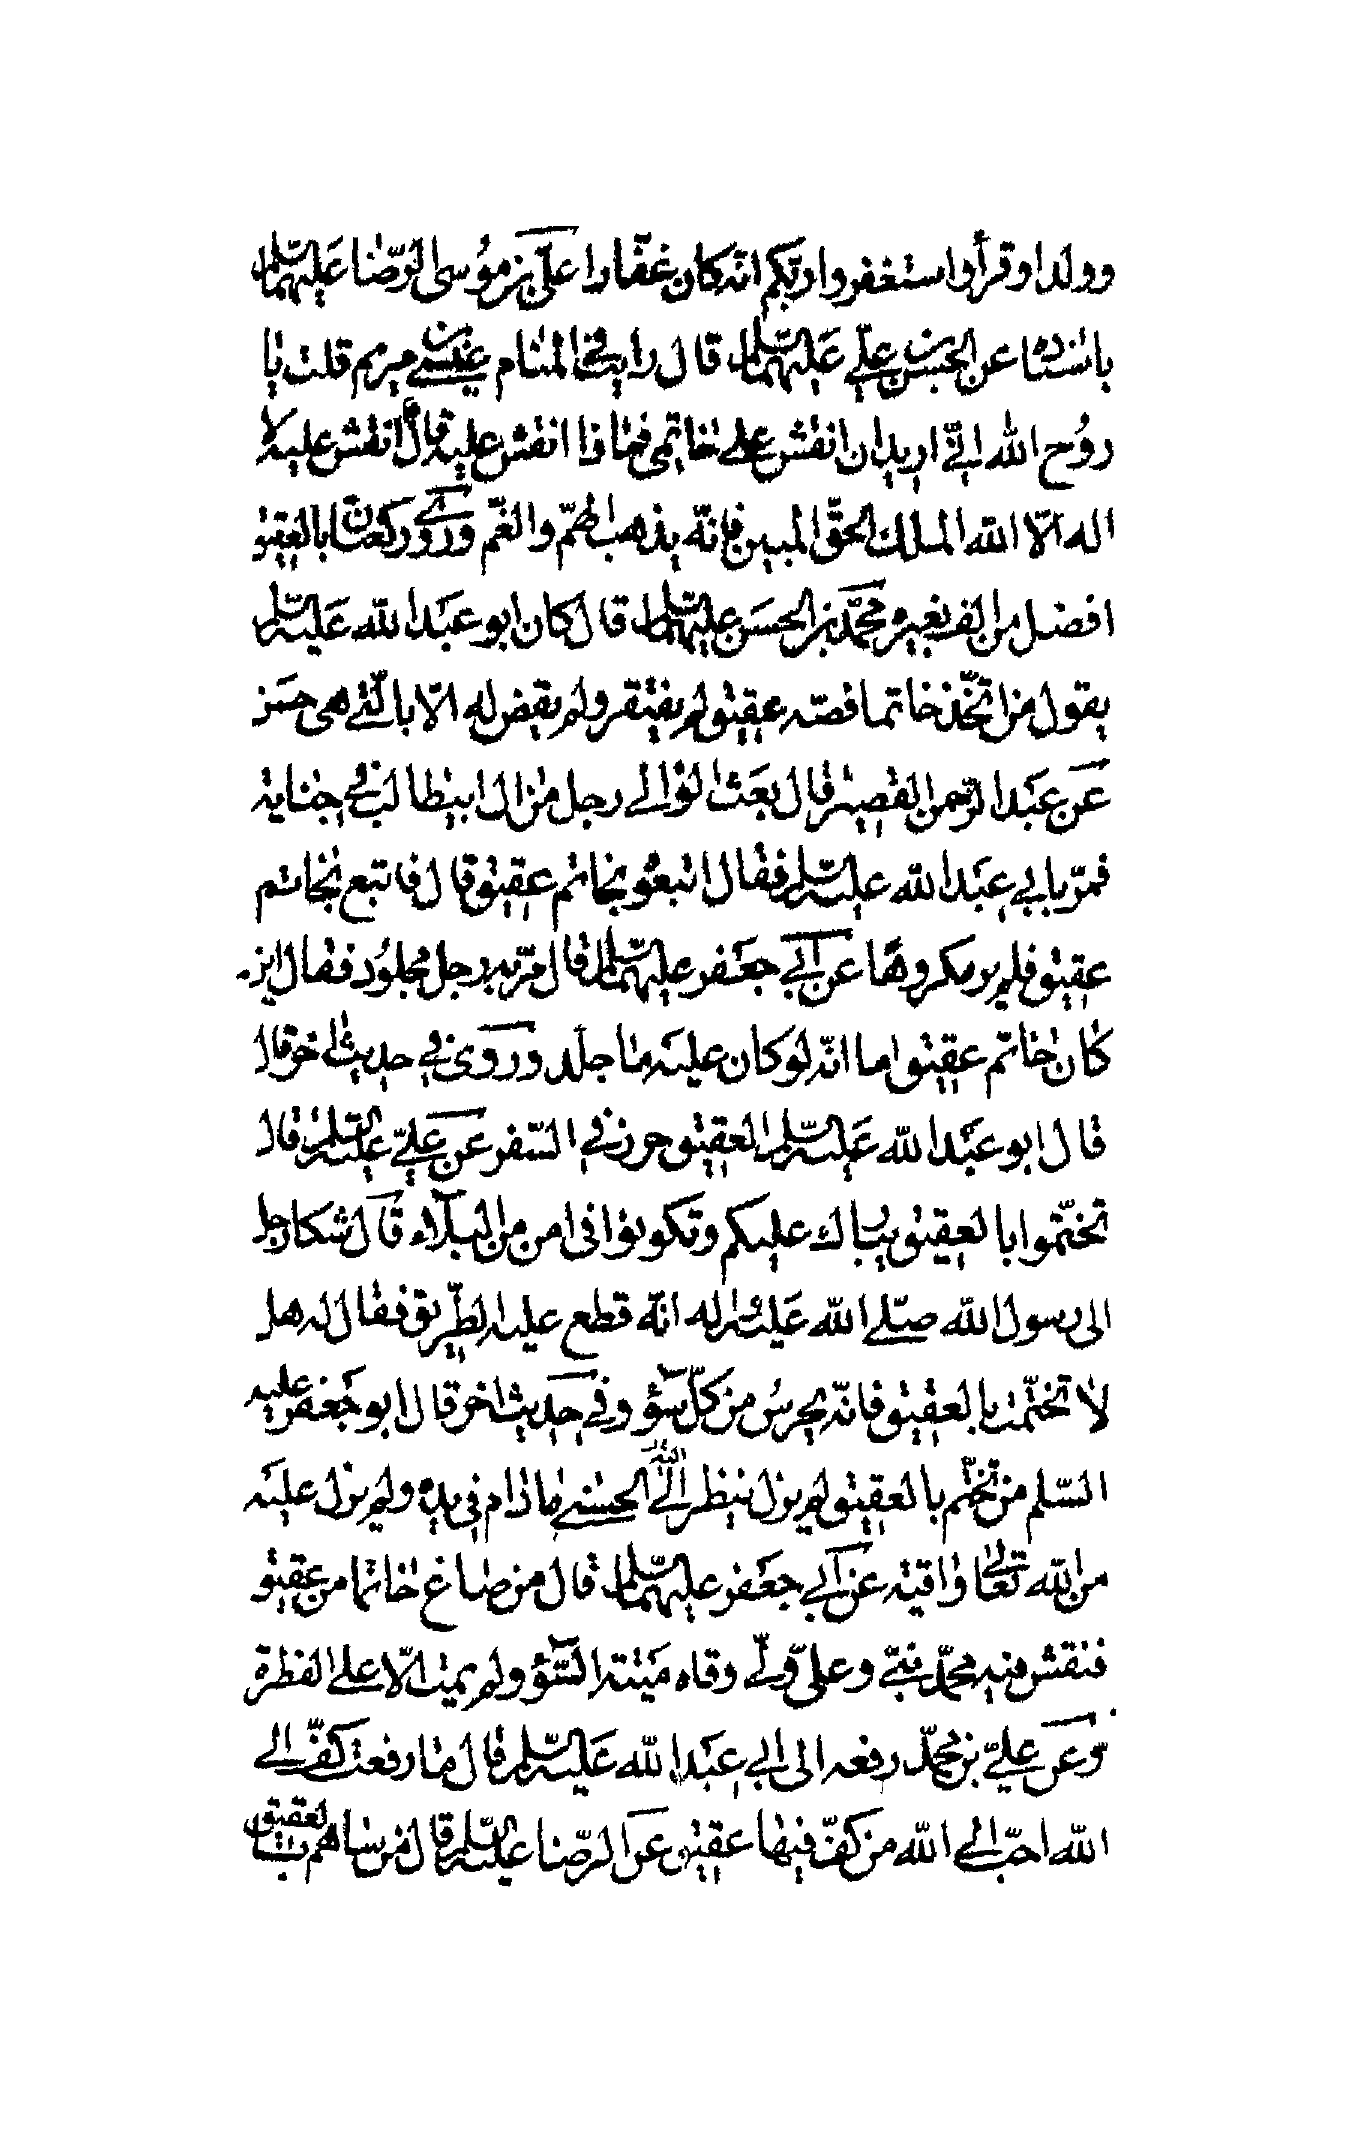 وولدا وقرأ واستغفروا ربّكم انّه كان غفّارا علىّ بن موُسى الرّضا عَليهما السّلم
باسناده عن الحسين بن علىّ عَليهما السّلم قال رايت في المنام عيسى بن مريم قلت يا
روُح الله انّي اريد ان انقش على خاتمى فما ذا انقش عليه قال انقش عليه لا
اله الّا الله الملك الحقّ المبين فانّه يذهب الهمّ والغّم وروى ركعتان بالعقيق
افضل من الف بغيره محمّد بن الحسَن عليهما السّلم قال كان ابو عبَد الله عَليه السّلم
يقول من اتّخذ خاتما فصّه عقيق لم يفتقر ولم يقض له الّا بالّتى هى احسن
عَن عبَد الرّحمن القصير قال بعَث الوالى رجل من ال ابيطالب في جناية
فمرّ بابي عبَد الله عليه السّلم فقال اتبعوُه بخاتم عقيق قال فاتبع بخاتم
عقيق فلم ير مكروها عن ابي جعَفر عليهما السّلم قال مرّ به رجل مجلوُد فقال اين
كان خاتم عقيق اما انّه لو كان عليَه ما جلد وروى في حديث اخر قال
قال ابو عبَد الله عَليه السّلم العقيق حرز في السّفر عن علىّ عليه السّلم قال
تختّموا بالعقيق يبارك عليكم وتكونوا فى امن من البلاء قال شكا رجل
الى رسول الله صلّى الله عَليه واله انّه قطع عليه الطّريق فقال له هل
لا تختّمت بالعقيق فانّه يحرسُ من كلّ سوُء وفي حديث اخر قال ابو جَعفر عليه
السّلم من تختّم بالعقيق لم يزل ينظر الله الى الحسنى ما دام فى يده ولم يزل عليَه
من الله تعالى واقية عن ابي جعَفر عليهما السّلم قال من صاغ خاتما من عقيق
فنقش فيه محمّد نبىّ وعلى ولىّ وقاه ميَتة السّوُء ولم يمت الّا على الفطرة
وعَن علىّ بن محمّد رفعه الى ابي عبَد الله عَليه السّلم قال ما رفعت كفّ الى
الله احبّ الى الله من كفّ فيها عقيق عن الرّضا عليه السّلم قال من ساهم بالعقيق